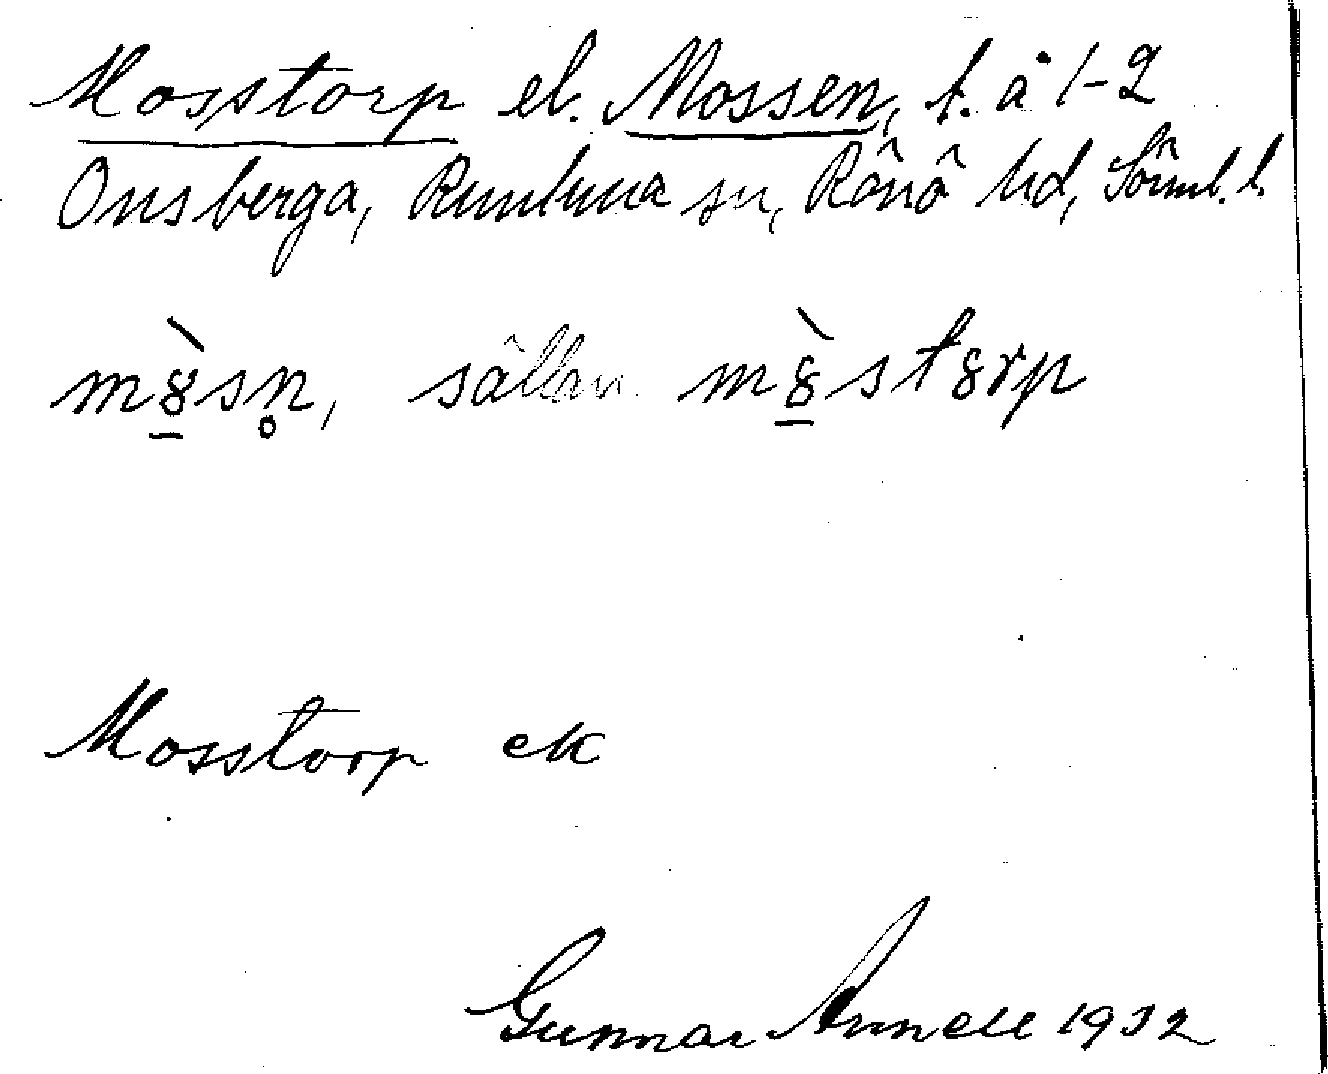 Mosstorp el. Mossen, t. å 1-2
Onsberga, Runtuna sn, Rönö hd, Sörml. l.
m8̠̀sn̥, sällan m8̠̀st8rp
Mosstorp ek
Gunnar Annell 1932